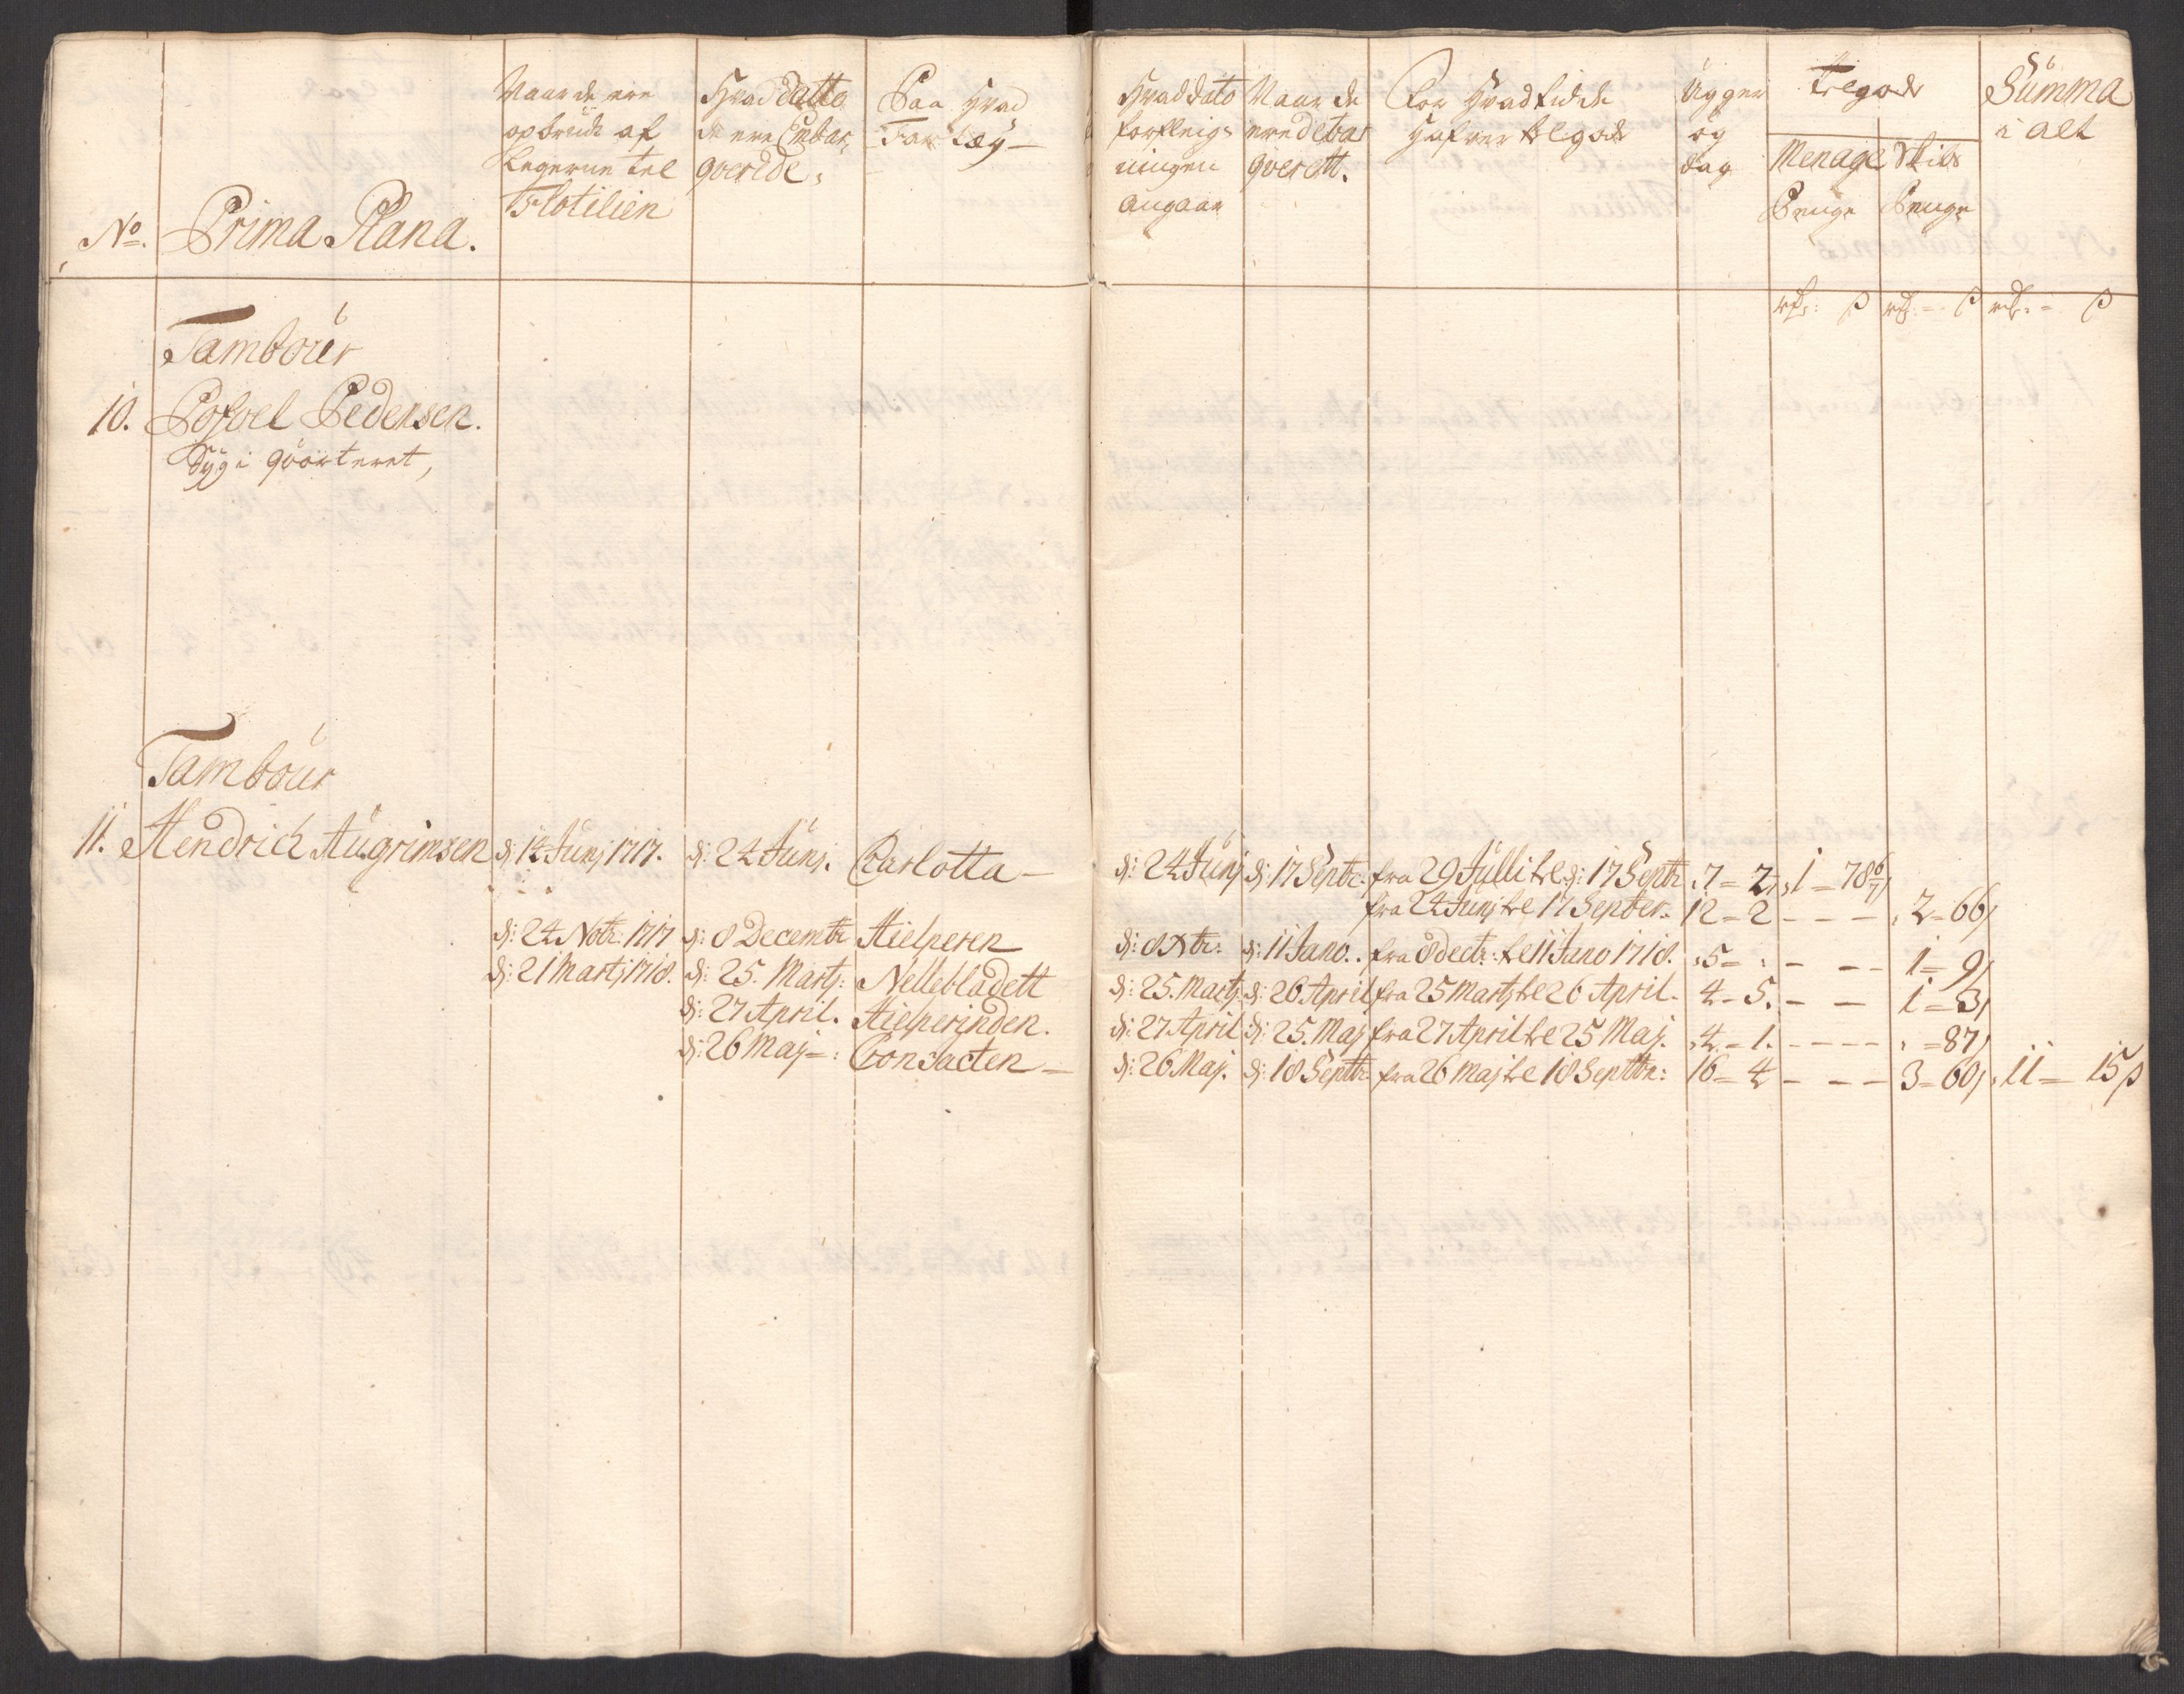 No. Prima Plana.
Naar de ere
opbrudt af
Legerne tel
Flotilien
Hvad datto
de ere Embar,
qverede,
Paa Hvad
Far tøy —
Hvad dato
forfleig=
ningen
angaar
Naar de
ere debar
qverett.
For Hvad tid de
Hafver telgode
Ugger
og
dag
telgode
Menage
Penge
Skibs
Penge
Summa
i alt
rdr: ß rdr - ß rdr - ß
Tambour
10. Pofvel Pedersen.
Syg i qvarteret,
Tambour
11. Hendrich Augrimsen d: 14 Junj 1717. d: 24 Junj. Charlotta — d: 24 Junj d: 17 Septr: fra 29 Julli tel d: 17 Septr 7 = 2 1 = 78 6/7
fra 24 Junj tel 17 Septer: 12 = 2 - - - 2 = 66
d: 24 Notr: 1717 d: 8 Decembr Hielperen d: 8 Xbr: d: 11 Jano. fra 8 dectr: tel 11 Jano 1718. 5 = : - - - 1 = 9
d: 21 Martj 1718. d: 25. Martj: Nellebladett d: 25. Martj d: 26 April fra 25 Martj tel 26 April. 4 - 5. - - 1 = 3
d: 27 April. Hielperinden. d: 27 April d: 25. Maj fra 27 April tel 25 Maj. 4 = 1. - - - - = 87
d: 26 Maj = : Consacten — d: 26 Maj. d: 18 Septtr: fra 26 Maj tel 18 Septtr: 16 = 4 - - - 3 = 60 11 = 15 ß